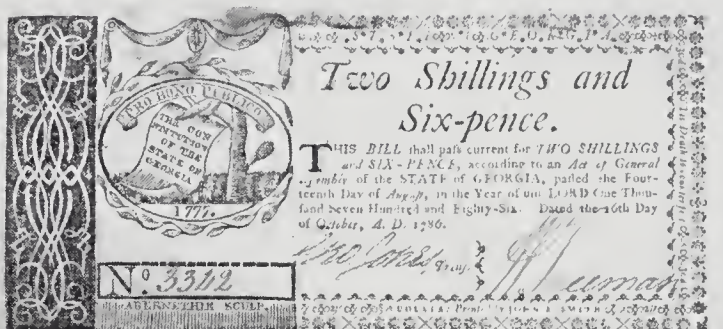 PRO BONO PUBLICO
THE CON
STITUTION
OF THE
STATE OF
GEORGIA
1777.
No. 3342
ABERNETHIE SCULP.
GEORGIA
Two Shillings and
Six-pence.
THIS BILL shall paſs current for TWO SHILLINGS
and SIX-PENCE, according to an Act of General
of the STATE of GEORGIA, paſſed the Four-
teenth Day of Auguſt, in the Year of our LORD One Thou-
ſand Seven Hundred and Eighty-Six. Dated the 16th Day
of October, A. D. 1786.
Jno Jones Treas.
AUGUSTA: Printed by JOHN E. SMITH